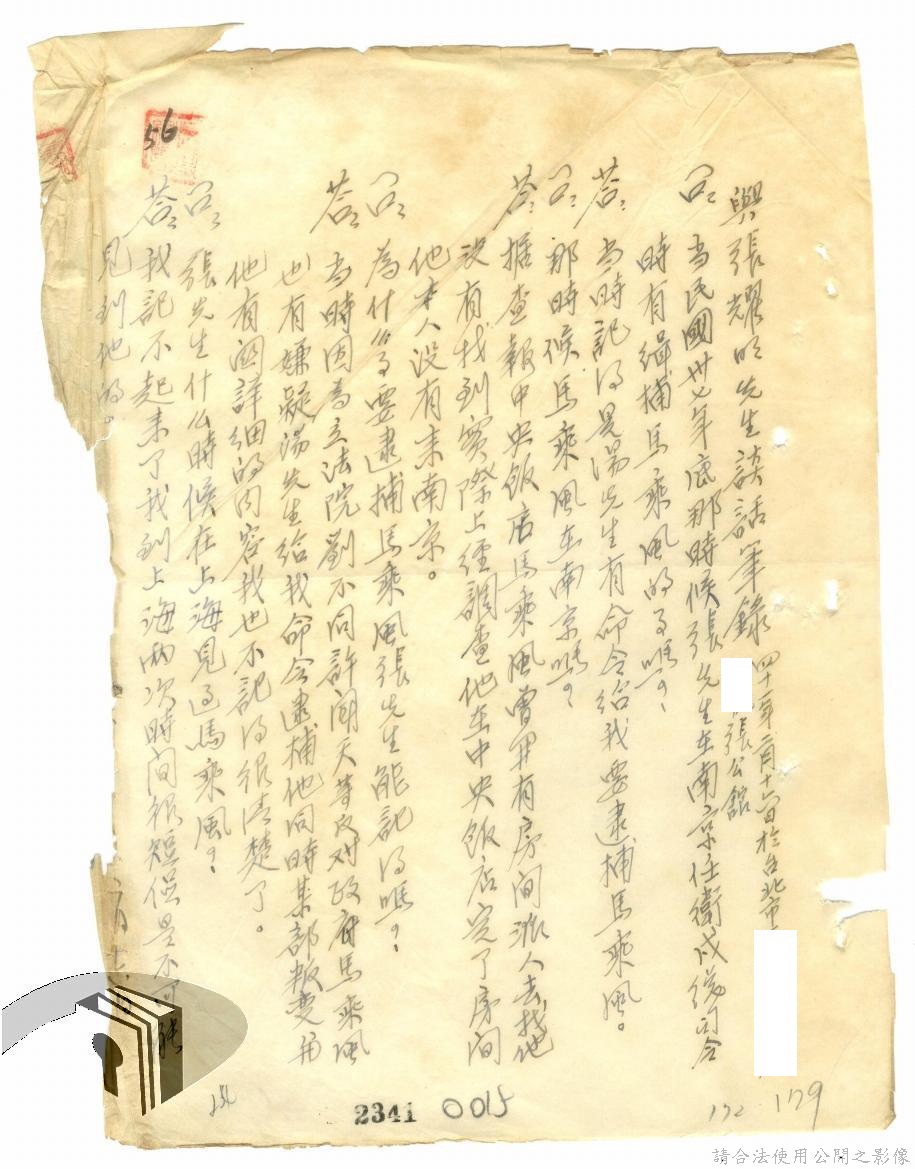 與張耀明先生談話筆錄 四十一年二月十六日於台北市
張公館
问：当民國卅七年底那時候張先生在南京任衛戍総司令
時有緝捕馬乘风的事嗎？
答：当時記得是湯先生有命令给我要逮捕馬乘風。
问：那時候馬乘风在南京嗎？
答：据查報中央飯店馬乘風曾開有房间派人去找他
没有找到實際上经調查他在中央飯店定了房间
他本人没有来南京。
问：為什么要逮捕馬乘风張先生能記得嗎？
答：当時因為立法院劉不同許闻天等反对政府馬乘風
也有嫌疑湯先生给我命令逮捕他同時某部叛变与
他有関詳细的内容我也不記得很清楚了。
问：張先生什么時候在上海見過馬乘風？
答：我記不起来了我到上海兩次時间很短但是不可能
見到他的。
二月十六日
56
156
2341 0015
172 179
請合法使用公開之影像